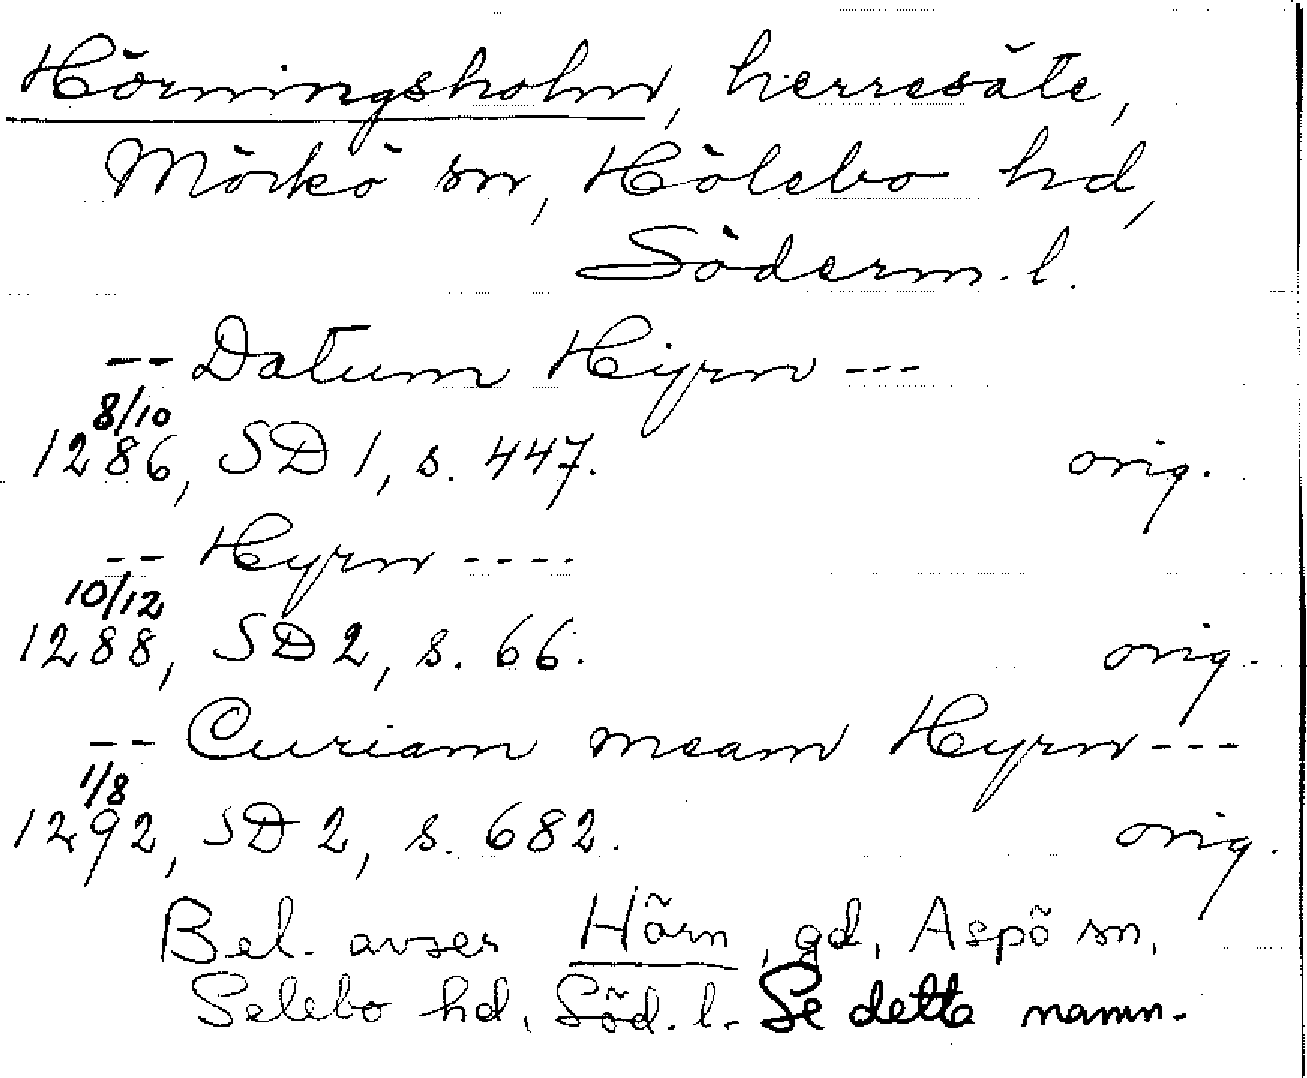 Hörningsholm, herresäte,
Mörkö sn, Hölebo hd,
Söderm. l.
-- Datum Hyrn ---
8/10
1286, SD 1, s. 447. orig.
-- Hyrn ----
10/12
1288, SD 2, s. 66. orig.
-- Curiam meam Hyrn ---
1/8
1292, SD 2, s. 682. orig.
Bel. avser Hörn, gd, Aspö sn,
Selebo hd, Söd. l. Se detta namn.